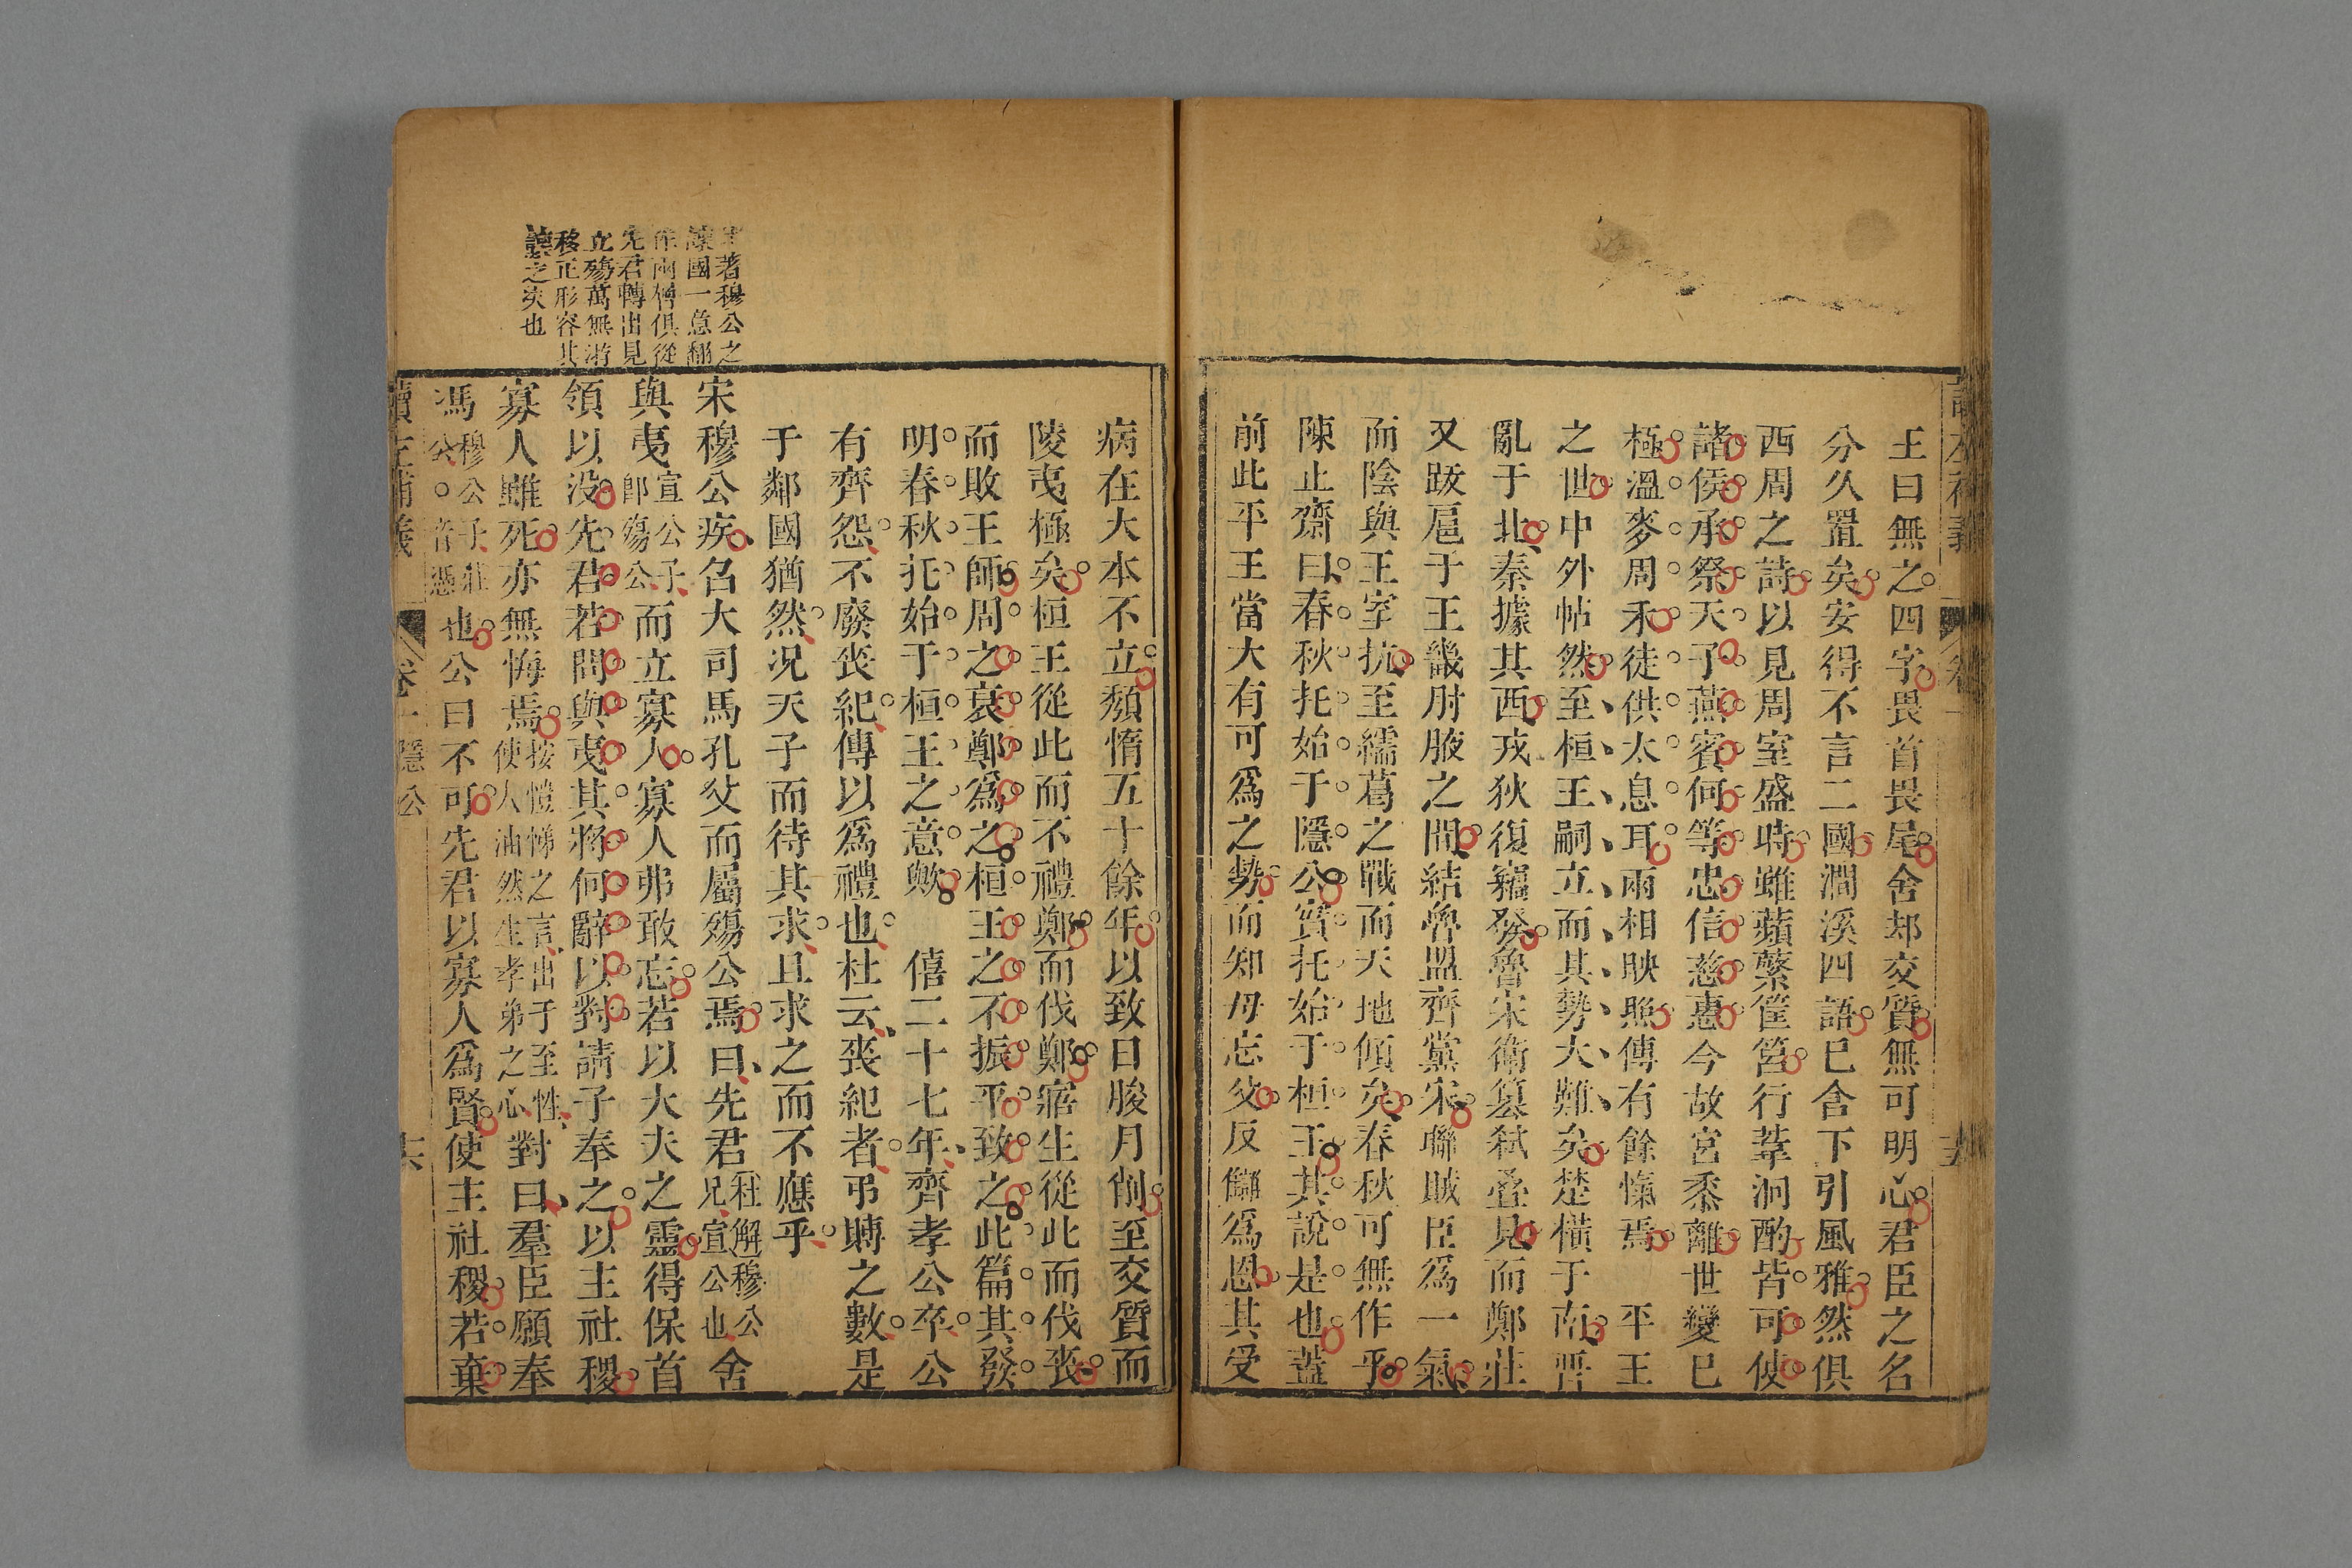 王曰無之四字畏首畏尾舍却交質無可明心君臣之名
分久置矣安得不言二國澗溪四語已含下引風雅然俱
西周之詩以見周室盛時雖蘋蘩筐筥行葦泂酌皆可使
諸侯承祭天子燕賓何等忠信慈惠今故宮黍離世變已
極溫麥周禾徒供太息耳兩相映照傳有餘愾焉　平王
之世中外帖然至桓王嗣立而其勢大難矣楚橫于南晉
亂于北秦據其西戎狄復竊發魯宋衛篡弒疊見而鄭莊
又跋扈于王畿肘腋之間結魯盟齊黨宋聯賊臣爲一氣
而陰與王室抗至繻葛之戰而天地傾矣春秋可無作乎
陳止齋曰春秋托始于隱公實托始于桓王其說是也蓋
前此平王當大有可爲之勢而知母忘父反讎爲恩其受
病在大本不立頹惰五十餘年以致日朘月削至交質而
陵夷極矣桓王從此而不禮鄭而伐鄭寤生從此而伐喪
而敗王師周之衰鄭爲之桓王之不振平致之此篇其發
明春秋托始于桓王之意歟　僖二十七年齊孝公卒公
有齊怨不廢喪紀傳以爲禮也杜云喪紀者弔賻之數是
于鄰國猶然况天子而待其求且求之而不應乎
宋穆公疾召大司馬孔父而屬殤公焉曰先君杜解穆公兄宣公也舍
與夷宣公子即殤公而立寡人寡人弗敢忘若以大夫之靈得保首
領以没先君若問與夷其將何辭以對請子奉之以主社稷
寡人雖死亦無悔焉按愷悌之言出于至性使人油然生孝弟之心對曰羣臣願奉
馮穆公子莊公。音憑也公曰不可先君以寡人爲賢使主社稷若棄
著穆公之
讓國一意翻
作兩傳俱從
先君轉出見
立殤萬無游
移正形容其
讓之決也
卷一　隱公